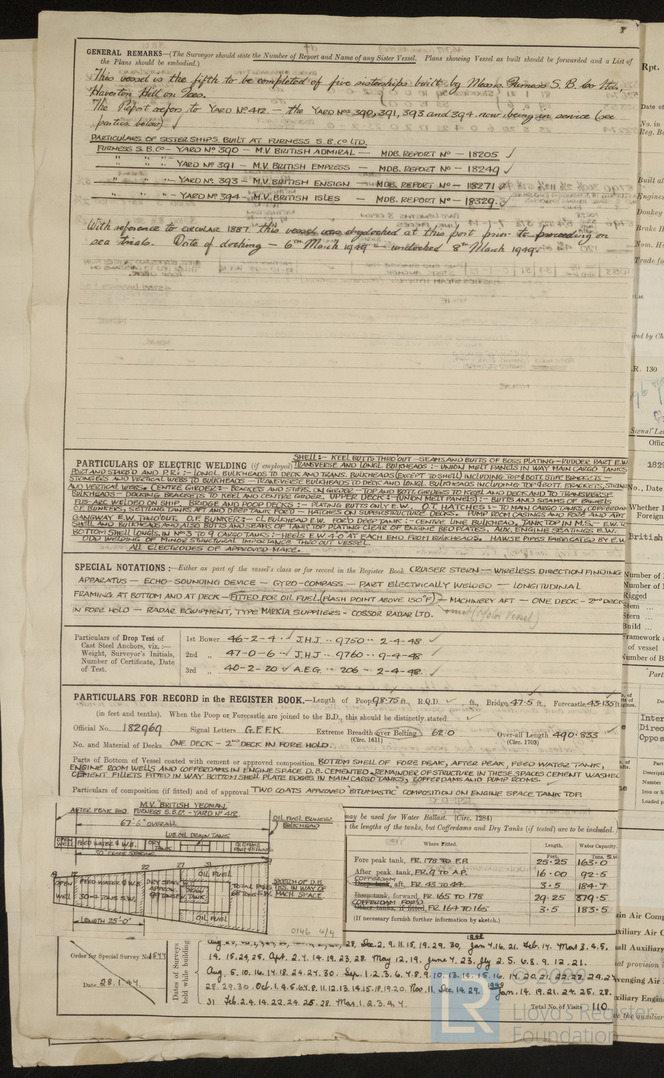 GENERAL REMARKS—(The Surveyor should state the Number of Report and Name of any Sister Vessel. Plans showing Vessel as built should be forwarded and a List of
the Plans should be embodied.)
This vessel is the fifth to be completed of five sisterships built by Messrs Furness S.B. Co Ltd,
Haverton Hill on Tees.
The Report refers to YARD No 412 — the YARD Nos 390, 391, 393 and 394 now being in service (see
particulars below)
PARTICULARS OF SISTER SHIPS, BUILT AT FURNESS S.B. CO LTD.
FURNESS S.B. CO — YARD No 390 — M.V. BRITISH ADMIRAL — MDB. REPORT No — 18205 ✓
" " " YARD No 391 — M.V. BRITISH EMPRESS — MDB. REPORT No — 18249 ✓
" " " — YARD No 393 — M.V. BRITISH ENSIGN — MDB. REPORT No — 18271 ✓
" " " — YARD No 394 — M.V. BRITISH ISLES — MDB. REPORT No — 18329. ✓
With reference to CIRCULAR 1887 this vessel was drydocked at this port prior to proceeding on
sea trials. Date of docking — 6th March 1949 — undocked 8th March 1949.
PARTICULARS OF ELECTRIC WELDING (if employed)
SHELL:— KEEL BUTTS THRO'OUT — SEAMS AND BUTTS OF BOSS PLATING — RUDDER PART E.W.
TRANSVERSE AND LONGL BULKHEADS :— UNION MELT PANELS IN WAY MAIN CARGO TANKS
PORT AND STARB'D AND P.R.
STRINGERS AND VERTICAL WEBS TO BULKHEADS — TRANSVERSE BULKHEADS TO DECK AND LONGL BULKHEADS INCLUDING TOP & BOTT. BRACKETS,
AND VERTICAL WEBS. CENTRE GIRDER:— BRACKETS AND STIFFS. ON GIRDER — TOP AND BOTT. GIRDERS TO KEEL AND DECK AND TO TRANSVERSE
BULKHEADS — DOCKING BRACKETS TO KEEL AND CENTRE GIRDER. UPPER DECK:— (UNION MELT PANELS):— BUTTS AND SEAMS OF PANELS
FUS-ARC WELDED ON SHIP. BRIDGE AND POOP DECKS :— PLATING BUTTS ONLY E.W. O.T. HATCHES :— TO MAIN CARGO TANKS, COFFERDAM
OF BUNKERS, SETTLING TANKS AFT AND DEEP TANK FOR'D — HATCHES ON SUPERSTRUCTURE DECKS. PUMP ROOM CASINGS AND FORE AND AFT
GANGWAY E.W. THRO'OUT. O.F. BUNKERS:— C.L. BULKHEAD E.W. FOR'D DEEP TANK :— CENTRE LINE BULKHEAD, TANK TOP IN M/S:— E.W. TO
SHELL AND BULKHEADS AND ALSO BUTTS AND SEAMS OF TANK TOP PLATING CLEAR OF ENGINE BEDPLATES. AUX. ENGINE SEATINGS E.W.
BOTTOM SHELL LONGLS. IN Nos 3 TO 9 CARGO TANKS :— HEELS E.W. 4'0 AT EACH END FROM BULKHEADS. HAWSE PIPES FABRICATED BY E.W.
ODD WELDING OF MINOR STRUCTURAL IMPORTANCE THRO'OUT VESSEL.
ALL ELECTRODES OF APPROVED MAKE.
SPECIAL NOTATIONS:—Either as part of the vessel's class or for record in the Register Book. CRUISER STERN — WIRELESS DIRECTION FINDING
APPARATUS — ECHO-SOUNDING DEVICE — GYRO-COMPASS — PART ELECTRICALLY WELDED — LONGITUDINAL
FRAMING AT BOTTOM AND AT DECK — FITTED FOR OIL FUEL (FLASH POINT ABOVE 150°F) — MACHINERY AFT — ONE DECK — 2ND DECK
IN FORE HOLD — RADAR EQUIPMENT, TYPE MARK IA SUPPLIERS - COSSOR RADAR LTD. (Motor Vessel)
Particulars of Drop Test of
Cast Steel Anchors, viz.:—
Weight, Surveyor's Initials,
Number of Certificate, Date
of Test.
1st Bower 46-2-4 · J.H.J. · 9750 · 2-4-48. ✓
2nd " 47-0-6 J.H.J. 9760 · 9-4-48 ✓
3rd " 40-2-20 A.E.G. 206 · 2-4-48. ✓
PARTICULARS FOR RECORD in the REGISTER BOOK.—Length of Poop 98·75 ft., R.Q.D. ft., Bridge 47·5 ft., Forecastle 43·135 ft.
(in feet and tenths). When the Poop or Forecastle are joined to the B.D., this should be distinctly stated
Official No. 182969 Signal Letters G.F.F.K Extreme Breadth over Belting 62·0 Over-all Length 490·833
(Circ. 1611) (Circ. 1703)
No. and Material of Decks ONE DECK - 2ND DECK IN FORE HOLD.
Parts of Bottom of Vessel coated with cement or approved composition BOTTOM SHELL OF FORE PEAK, AFTER PEAK, FEED WATER TANK,
ENGINE ROOM WELLS AND COFFERDAMS IN ENGINE SPACE D.B. CEMENTED. REMAINDER OF STRUCTURE IN THESE SPACES CEMENT WASHED
CEMENT FILLETS FITTED IN WAY BOTTOM SHELL PLATE EDGES IN MAIN CARGO TANKS, COFFERDAMS AND PUMP ROOMS.
Particulars of composition (if fitted) and of approval TWO COATS APPROVED "BITUMASTIC" COMPOSITION ON ENGINE SPACE TANK TOP.
may be used for Water Ballast. (Circ. 1284)
the lengths of the tanks, but Cofferdams and Dry Tanks (if tested) are to be included.
M.V. "BRITISH YEOMAN"
FURNESS S.B. CO — YARD No 412
AFTER PEAK BHD.
67'-6" OVERALL
OIL FUEL BUNKERS
BULKHEAD
LUB. OIL DRAIN TANKS
OPEN WELL
FEED WATER
OIL FUEL
OIL FUEL
SKETCH OF D.B.
TKS. IN WAY OF
MACH. SPACE
LENGTH 25'-0"
0146 4/4
Where Fitted. Length. Water Capacity.
Feet. Tons, S.W.
Fore peak tank, FR. 178 TO F.P. 25·25 163·0
After peak tank, FR. 9 TO A.P. 16·00 92·5
COFFERDAM
Deep tank, aft, FR. 43 TO 44. 3·5 184·7
Deep tank, forward, FR. 165 TO 178 29·25 379·5
COFFERDAM FOR'D.
Other tanks, if fitted, FR. 164 TO 165 3·5 183·5
(If necessary furnish further information by sketch.)
Order for Special Survey No. 1544
Date 28.1.47.
Dates of Surveys
held while building
28. Dec. 2. 9. 11. 15. 19. 29. 30. 1948 Jan 7. 16. 21. Feb. 17. Mar. 3. 4. 5.
14. 15. 24. 25. Apl. 2. 7. 14. 19. 23. 28. May 12. 19. June 4. 23. Jly 2. 5. 6. 8. 9. 12. 21.
Aug. 5. 10. 16. 17. 18. 24. 24. 30. Sep. 1. 2. 3. 6. 7. 8. 9. 10. 13. 14. 15. 16. 17. 20. 21. 22. 22. 24. 27
28. 29. 30. Oct. 1. 4. 5. 6. 7. 8. 11. 12. 13. 14. 15. 18. 19. 20. Nov. 11. Dec. 14. 29. 1949 Jan. 14. 19. 21. 24. 25. 28.
31. Feb. 2. 4. 14. 22. 24. 25. 28. Mar. 1. 2. 3. 4. 7.
Total No. of Visits 110
© 2020
LR
Lloyd's Register
Foundation
Rpt.
Built at
Engines
Donkey
R. 130